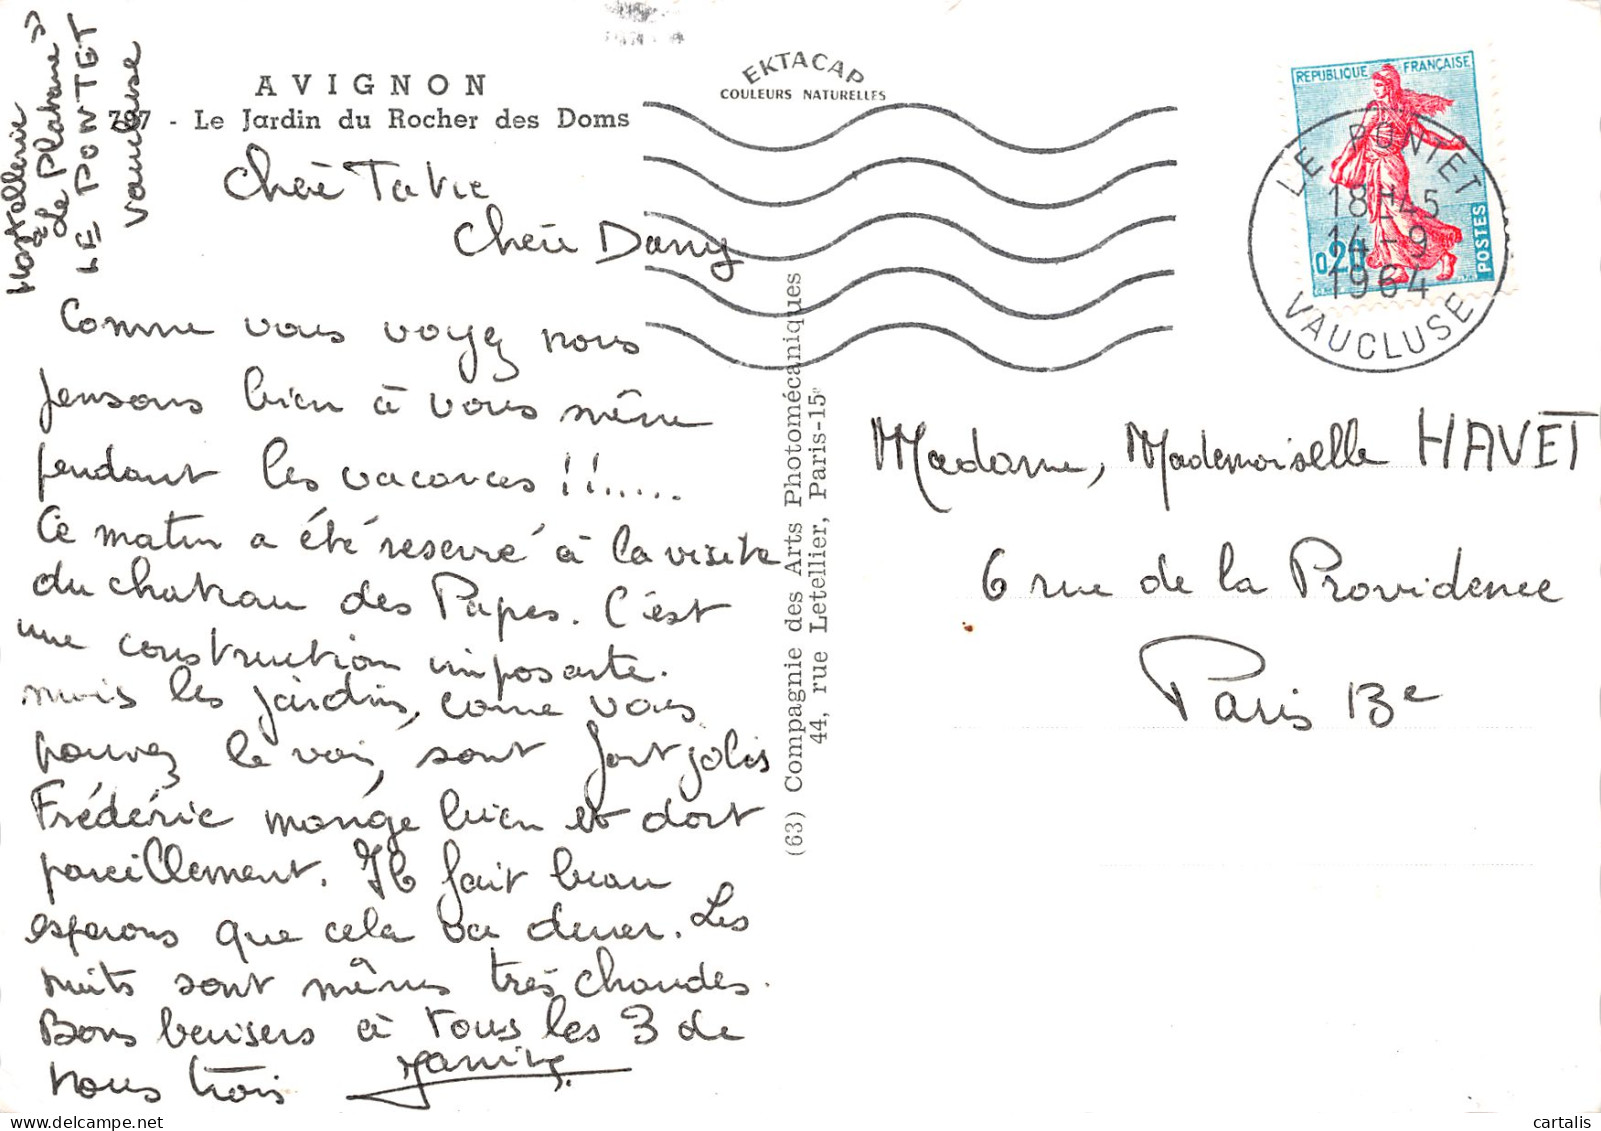 Hostellerie
« à le Platane »
LE PONTET
Vaucluse
AVIGNON
- Le Jardin du Rocher des Doms
EKTACAP
COULEURS NATURELLES
REPUBLIQUE FRANÇAISE
0,20
POSTES
LE PONTET
18H45
14-9
1964
VAUCLUSE
Chère
Chère Dany
Comme vous voyez nous
pensons bien à vous même
pendant les vacances !!.....
Ce matin a été réservé à la visite
du chateau des Papes. C'est
une construction imposante.
mais les jardins, comme vous
pouvez le voir, sont fort jolis
Frédéric mange bien et dort
pareillement. Il fait beau
esperons que cela va durer. Les
nuits sont mêmes très chaudes.
Bons baisers à tous les 3 de
nous trois
(63) Compagnie des Arts Photomécaniques
44, rue Letellier, Paris-15e
Madame, Mademoiselle HAVET
6 rue de la Providence
Paris 13e
cartalis